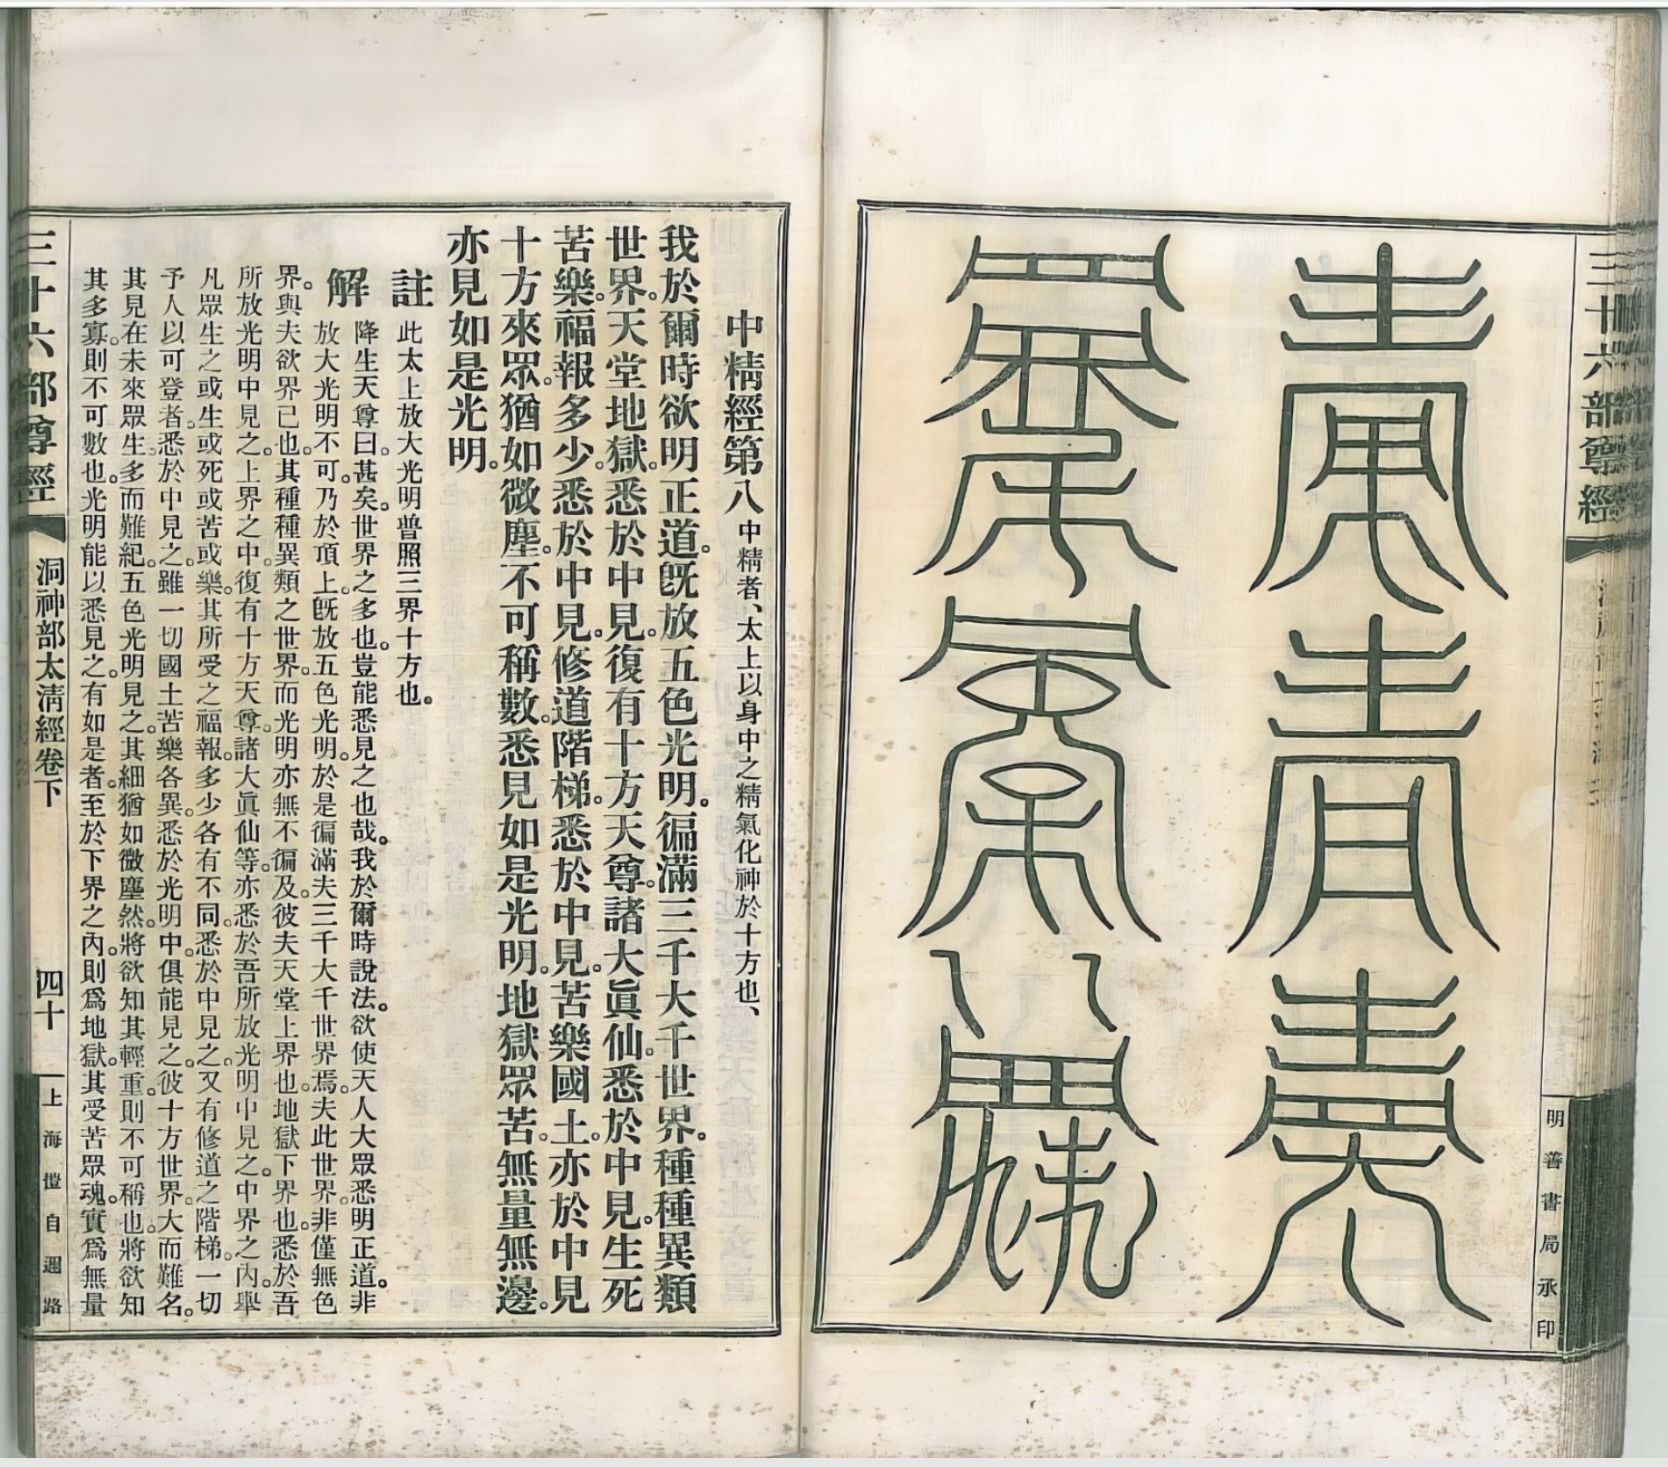 三十六部尊經
明善書局承印
中精經第八 中精者、太上以身中之精氣化神於十方也、
我於爾時欲明正道。既放五色光明。徧滿三千大千世界。種種異類
世界。天堂地獄。悉於中見。復有十方天尊。諸大眞仙。悉於中見。生死
苦樂。福報多少。悉於中見。修道階梯。悉於中見。苦樂國土。亦於中見
十方來眾。猶如微塵。不可稱數。悉見如是光明。地獄眾苦。無量無邊。
亦見如是光明。
註 此太上放大光明普照三界十方也。
解 降生天尊曰。甚矣。世界之多也。豈能悉見之也哉。我於爾時說法。欲使天人大眾悉明正道。非
放大光明不可。乃於頂上。既放五色光明。於是徧滿夫三千大千世界焉。夫此世界。非僅無色
界。與夫欲界已也。其種種異類之世界。而光明亦無不徧及。彼夫天堂上界也。地獄下界也。悉於吾
所放光明中見之。上界之中。復有十方天尊。諸大眞仙等。亦悉於吾所放光明中見之。中界之內。舉
凡眾生之或生或死或苦或樂。其所受之福報。多少各有不同。悉於中見之。又有修道之階梯。一切
予人以可登者。悉於中見之。雖一切國土苦樂各異。悉於光明中。俱能見之。彼十方世界。大而難名。
其見在未來眾生。多而難紀。五色光明。見之。其細猶如微塵然。將欲知其輕重。則不可稱也。將欲知
其多寡。則不可數也。光明能以悉見之。有如是者。至於下界之內。則爲地獄。其受苦眾魂。實爲無量
三十六部尊經
洞神部太清經卷下
四十
上海
自邇路